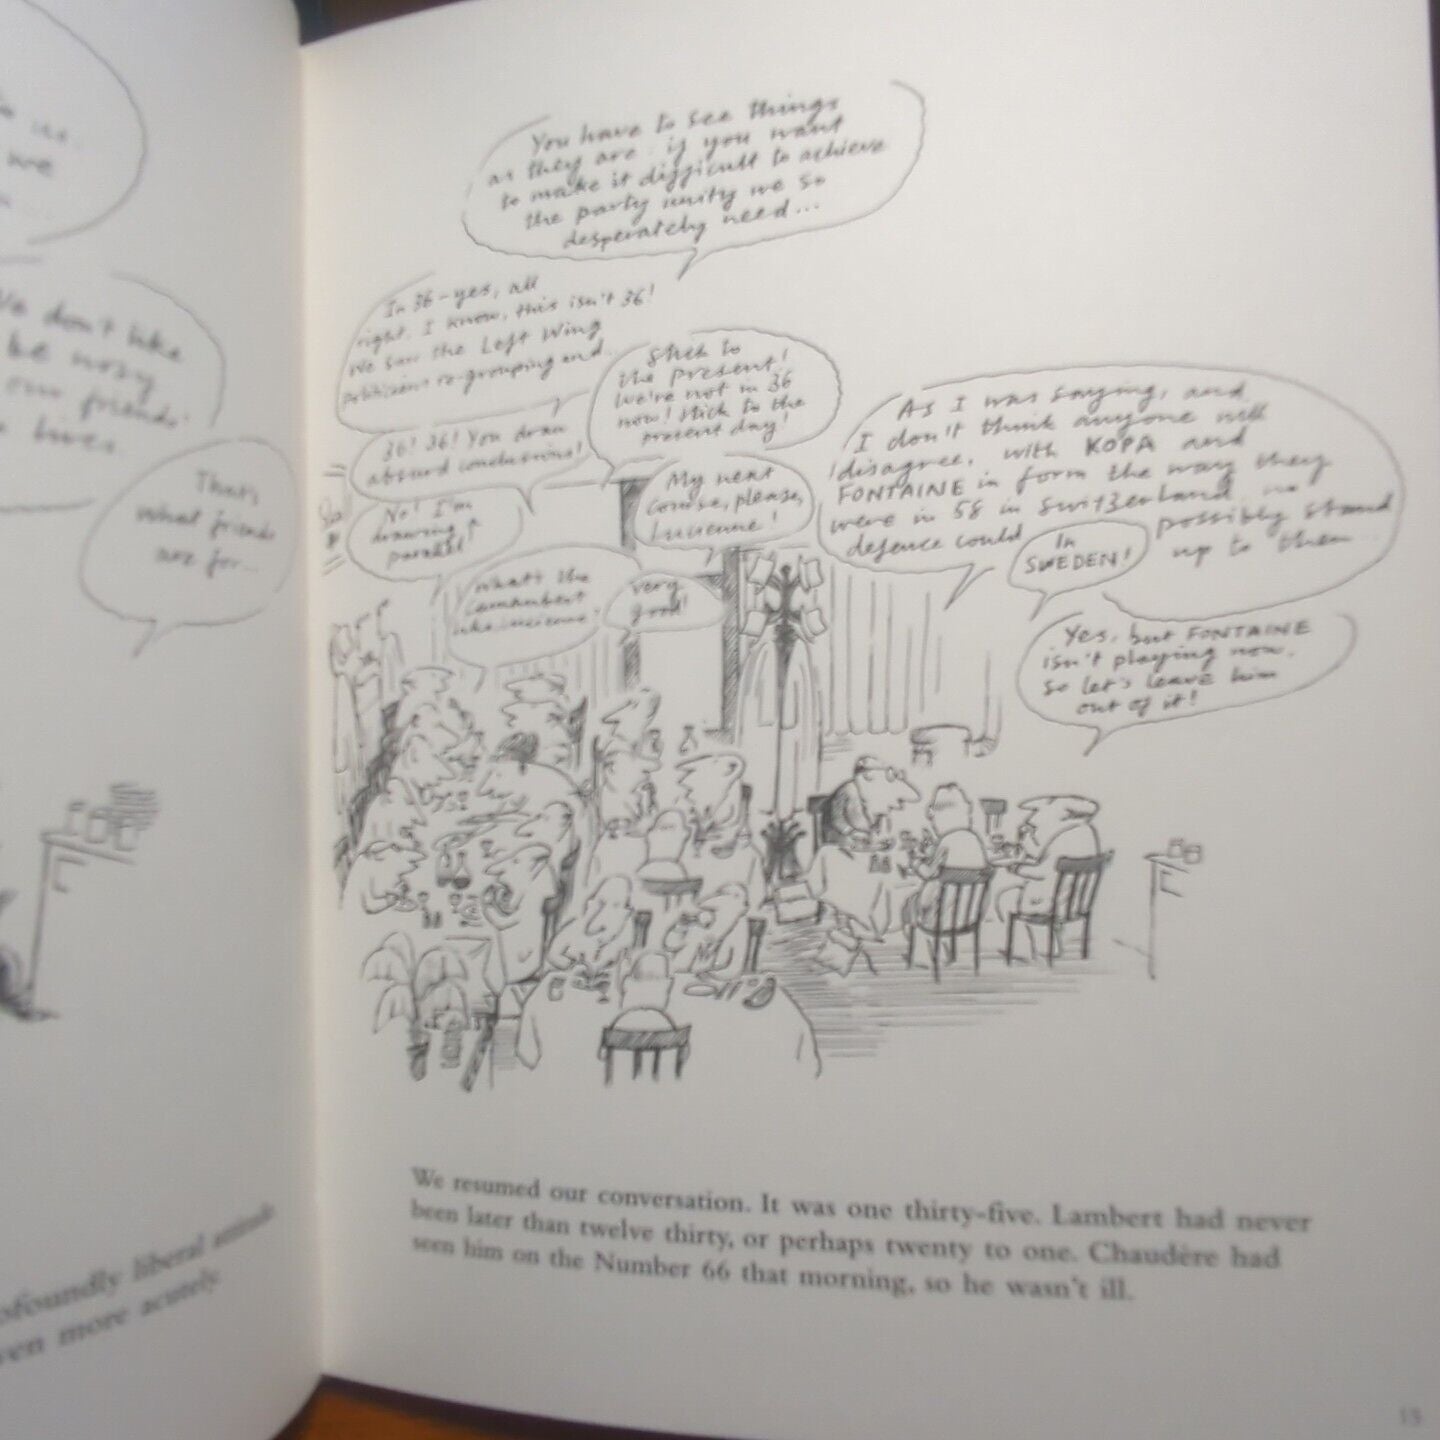 we
don't like
be nosy
our friends'
lives.
That's
what friends
are for...
profoundly liberal attitude
even more acutely.
You have to see things
as they are. if you want
to make it difficult to achieve
the party unity we so
desperately need...
In 36 - yes, all
right. I know, this isn't 36!
We saw the Left Wing
politicians re-grouping and...
Stick to
the present!
We're not in 36
now! Stick to the
present day!
36! 36! You draw
absurd conclusions!
No! I'm
drawing a
parallel!
My next
course, please,
Lucienne!
What's the
camembert
like, Lucienne?
Very
good!
As I was saying, and
I don't think anyone will
disagree, with KOPA and
FONTAINE in form the way they
were in 58 in Switzerland no
defence could possibly stand
up to them...
In
SWEDEN!
Yes, but FONTAINE
isn't playing now,
so let's leave him
out of it!
We resumed our conversation. It was one thirty-five. Lambert had never
been later than twelve thirty, or perhaps twenty to one. Chaudère had
seen him on the Number 66 that morning, so he wasn't ill.
13